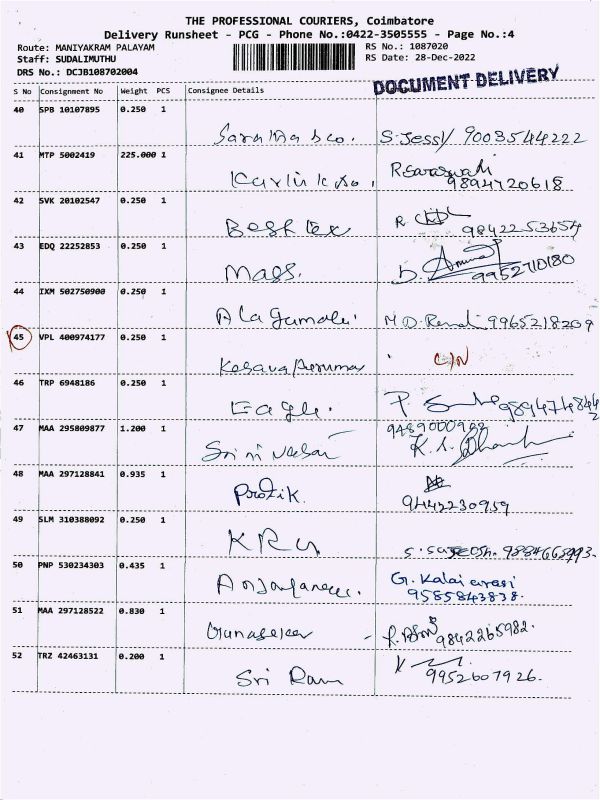 THE PROFESSIONAL COURIERS, Coimbatore
Delivery Runsheet - PCG - Phone No.:0422-3505555 - Page No.:4
Route: MANIYAKRAM PALAYAM RS No.: 1087020
Staff: SUDALIMUTHU RS Date: 28-Dec-2022
DRS No.: DCJB108702004
DOCUMENT DELIVERY
S No Consignment No Weight PCS Consignee Details
40 SPB 10107895 0.250 1
S. Jessy 9003544222
41 MTP 5002419 225.000 1
R. Saraswathi
9894720618
42 SVK 20102547 0.250 1
R 9842253654
43 EDQ 22252853 0.250 1
Mass. D. 9952710180
44 IXM 502750900 0.250 1
Alagumalai. M.D. 9965218209
45 VPL 400974177 0.250 1
C/N
46 TRP 6948186 0.250 1
Eagle. P.
47 MAA 295809877 1.200 1
9489000982
Srinivasan K.S.
48 MAA 297128841 0.935 1
9442230959
49 SLM 310388092 0.250 1
S.
50 PNP 530234303 0.435 1
G. Kalaiarasi
9585843838.
51 MAA 297128522 0.830 1
Gunaseker 9842265982.
52 TRZ 42463131 0.200 1
Sri Ram 9952607926.